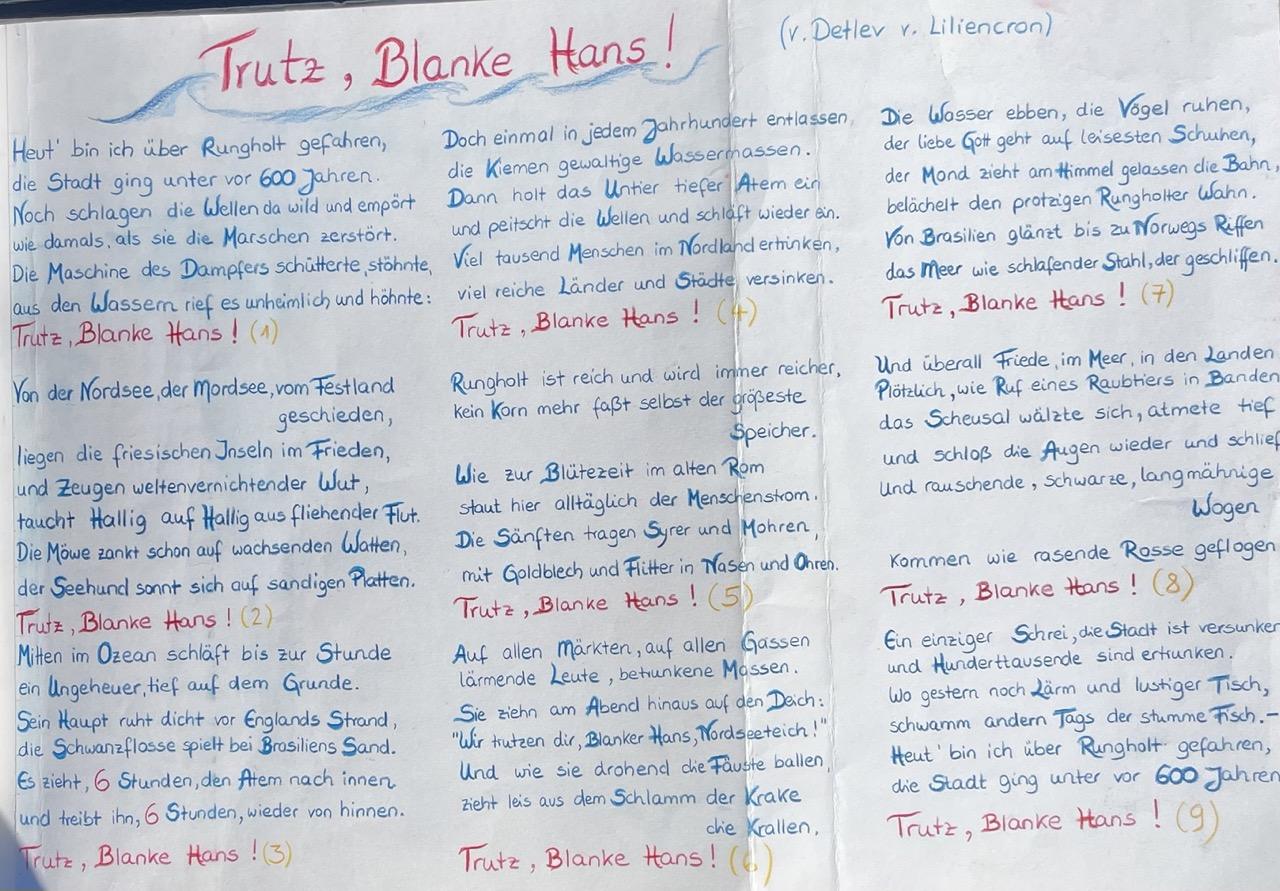 Trutz, Blanke Hans!
(v. Detlev v. Liliencron)
Heut' bin ich über Rungholt gefahren,
die Stadt ging unter vor 600 Jahren.
Noch schlagen die Wellen da wild und empört
wie damals, als sie die Marschen zerstört.
Die Maschine des Dampfers schütterte, stöhnte,
aus den Wassern rief es unheimlich und höhnte:
Trutz, Blanke Hans! (1)
Von der Nordsee, der Mordsee, vom Festland
geschieden,
liegen die friesischen Inseln im Frieden,
und Zeugen weltenvernichtender Wut,
taucht Hallig auf Hallig aus fliehender Flut.
Die Möwe zankt schon auf wachsenden Watten,
der Seehund sonnt sich auf sandigen Platten.
Trutz, Blanke Hans! (2)
Mitten im Ozean schläft bis zur Stunde
ein Ungeheuer, tief auf dem Grunde.
Sein Haupt ruht dicht vor Englands Strand,
die Schwanzflosse spielt bei Brasiliens Sand.
Es zieht, 6 Stunden, den Atem nach innen
und treibt ihn, 6 Stunden, wieder von hinnen.
Trutz, Blanke Hans! (3)
Doch einmal in jedem Jahrhundert entlassen,
die Kiemen gewaltige Wassermassen.
Dann holt das Untier tiefer Atem ein
und peitscht die Wellen und schläft wieder ein.
Viel tausend Menschen im Nordland ertrinken,
viel reiche Länder und Städte versinken.
Trutz, Blanke Hans! (4)
Rungholt ist reich und wird immer reicher,
kein Korn mehr faßt selbst der größeste
Speicher.
Wie zur Blütezeit im alten Rom
staut hier alltäglich der Menschenstrom.
Die Sänften tragen Syrer und Mohren,
mit Goldblech und Flitter in Nasen und Ohren.
Trutz, Blanke Hans! (5)
Auf allen Märkten, auf allen Gassen
lärmende Leute, betrunkene Massen.
Sie ziehn am Abend hinaus auf den Deich:
"Wir trutzen dir, Blanker Hans, Nordseeteich!"
Und wie sie drohend die Fäuste ballen,
zieht leis aus dem Schlamm der Krake
die Krallen.
Trutz, Blanke Hans! (6)
Die Wasser ebben, die Vögel ruhen,
der liebe Gott geht auf leisesten Schuhen,
der Mond zieht am Himmel gelassen die Bahn,
belächelt den protzigen Rungholter Wahn.
Von Brasilien glänzt bis zu Norwegs Riffen
das Meer wie schlafender Stahl, der geschliffen.
Trutz, Blanke Hans! (7)
Und überall Friede, im Meer, in den Landen
Plötzlich, wie Ruf eines Raubtiers in Banden
das Scheusal wälzte sich, atmete tief
und schloß die Augen wieder und schlief
Und rauschende, schwarze, langmähnige
Wogen
Kommen wie rasende Rosse geflogen
Trutz, Blanke Hans! (8)
Ein einziger Schrei, die Stadt ist versunken
und Hunderttausende sind ertrunken.
Wo gestern noch Lärm und lustiger Tisch,
schwamm andern Tags der stumme Fisch.-
Heut' bin ich über Rungholt gefahren,
die Stadt ging unter vor 600 Jahren
Trutz, Blanke Hans! (9)